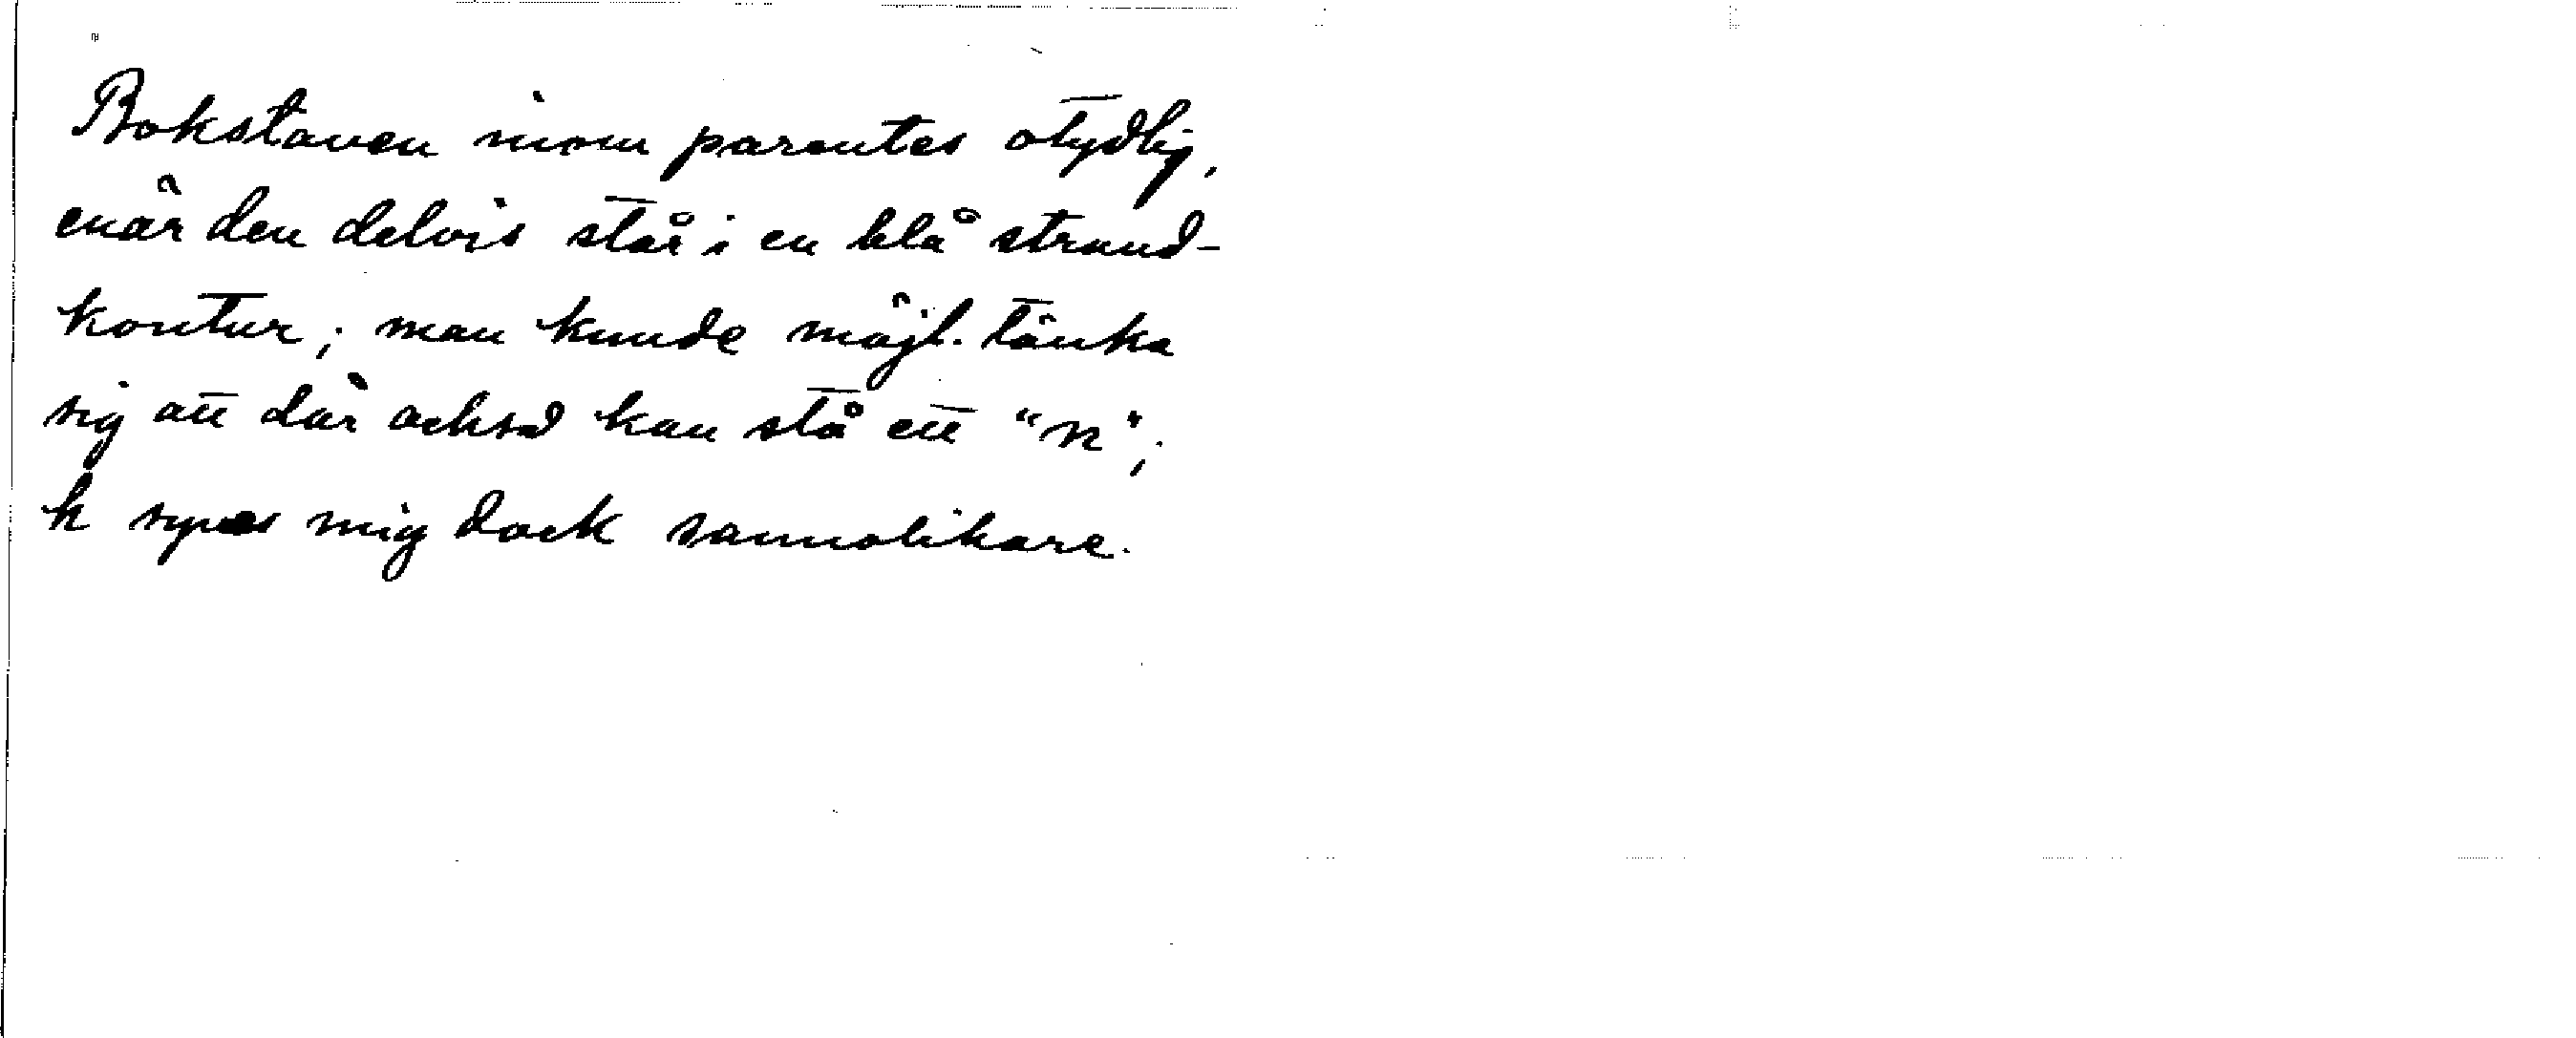 Bokstaven inom parentes otydlig,
enär den delvis står i en blå strand-
kontur; man kunde möjl. tänka
sig att där också kan stå ett "n";
k synes mig dock sannolikare.